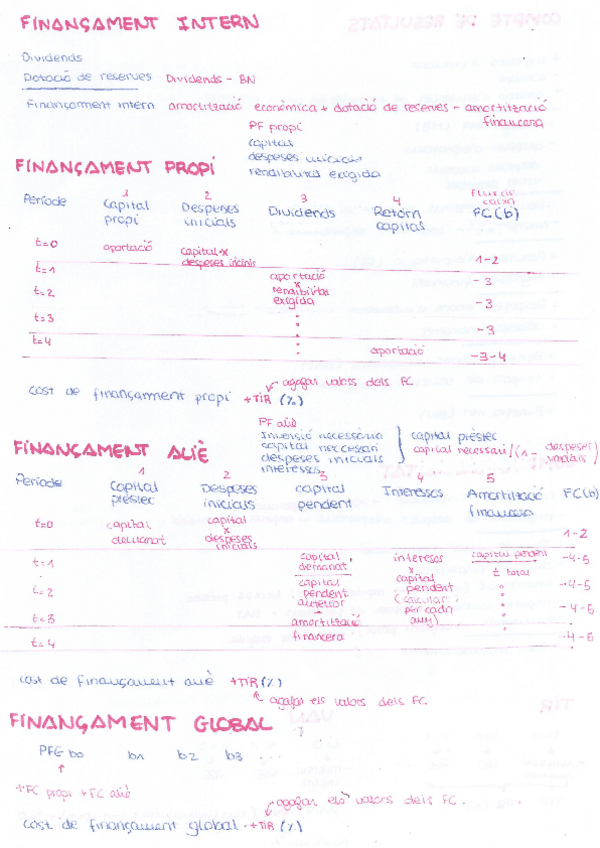 FINANÇAMENT INTERN
Dividends
Dotació de reserves Dividends - BN
Finançament intern amortització econòmica + dotació de reserves - amortització financera
PF propi
capital
despeses inicials
rendibilitat exigida
FINANÇAMENT PROPI
Període 1 Capital propi 2 Despeses inicials 3 Dividends 4 Retorn capital Fluxos de caixa FC(b)
t=0 aportació capital x despeses inicials 1-2
t=1 aportació x rendibilitat exigida -3
t=2 " -3
t=3 " -3
t=4 aportació -3-4
cost de finançament propi +TIR (%) agafar valors dels FC
PF aliè
Inversió necessària
capital necessari
despeses inicials
interessos
capital préstec
capital necessari/(1- despeses inicials)
FINANÇAMENT ALIÈ
Període 1 Capital préstec 2 Despeses inicials 3 capital pendent 4 Interessos 5 Amortització financera FC(b)
t=0 capital demanat capital x despeses inicials 1-2
t=1 capital demanat interesos x capital pendent (calcular per cada any) capital pendent ÷ total -4-5
t=2 capital pendent anterior - amortització financera " -4-5
t=3 " -4-5
t=4 " -4-5
cost de finançament aliè +TIR (%)
agafar els valors dels FC.
FINANÇAMENT GLOBAL
PFG b0 b1 b2 b3 ...
+FC propi +FC aliè
agafar els valors dels FC.
cost de finançament global +TIR (%)